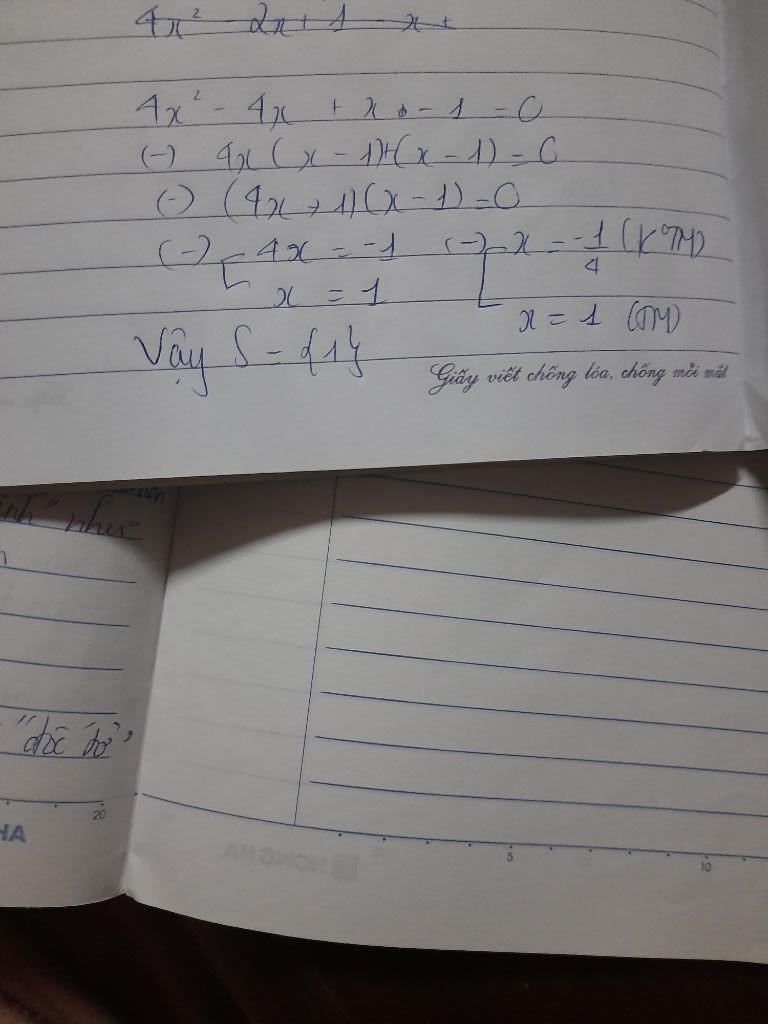 4x² - 2x + 1 - x +
4x² - 4x + x - 1 = 0
(-) 4x (x - 1) + (x - 1) = 0
(-) (4x + 1)(x - 1) = 0
(-) [ 4x = -1 (-) [ x = -1/4 (KTM)
x = 1
x = 1 (TM)
Vậy S = {1}
Giấy viết chống lóa, chống mỏi mắt
như
20
HA
HONG HA
5
10